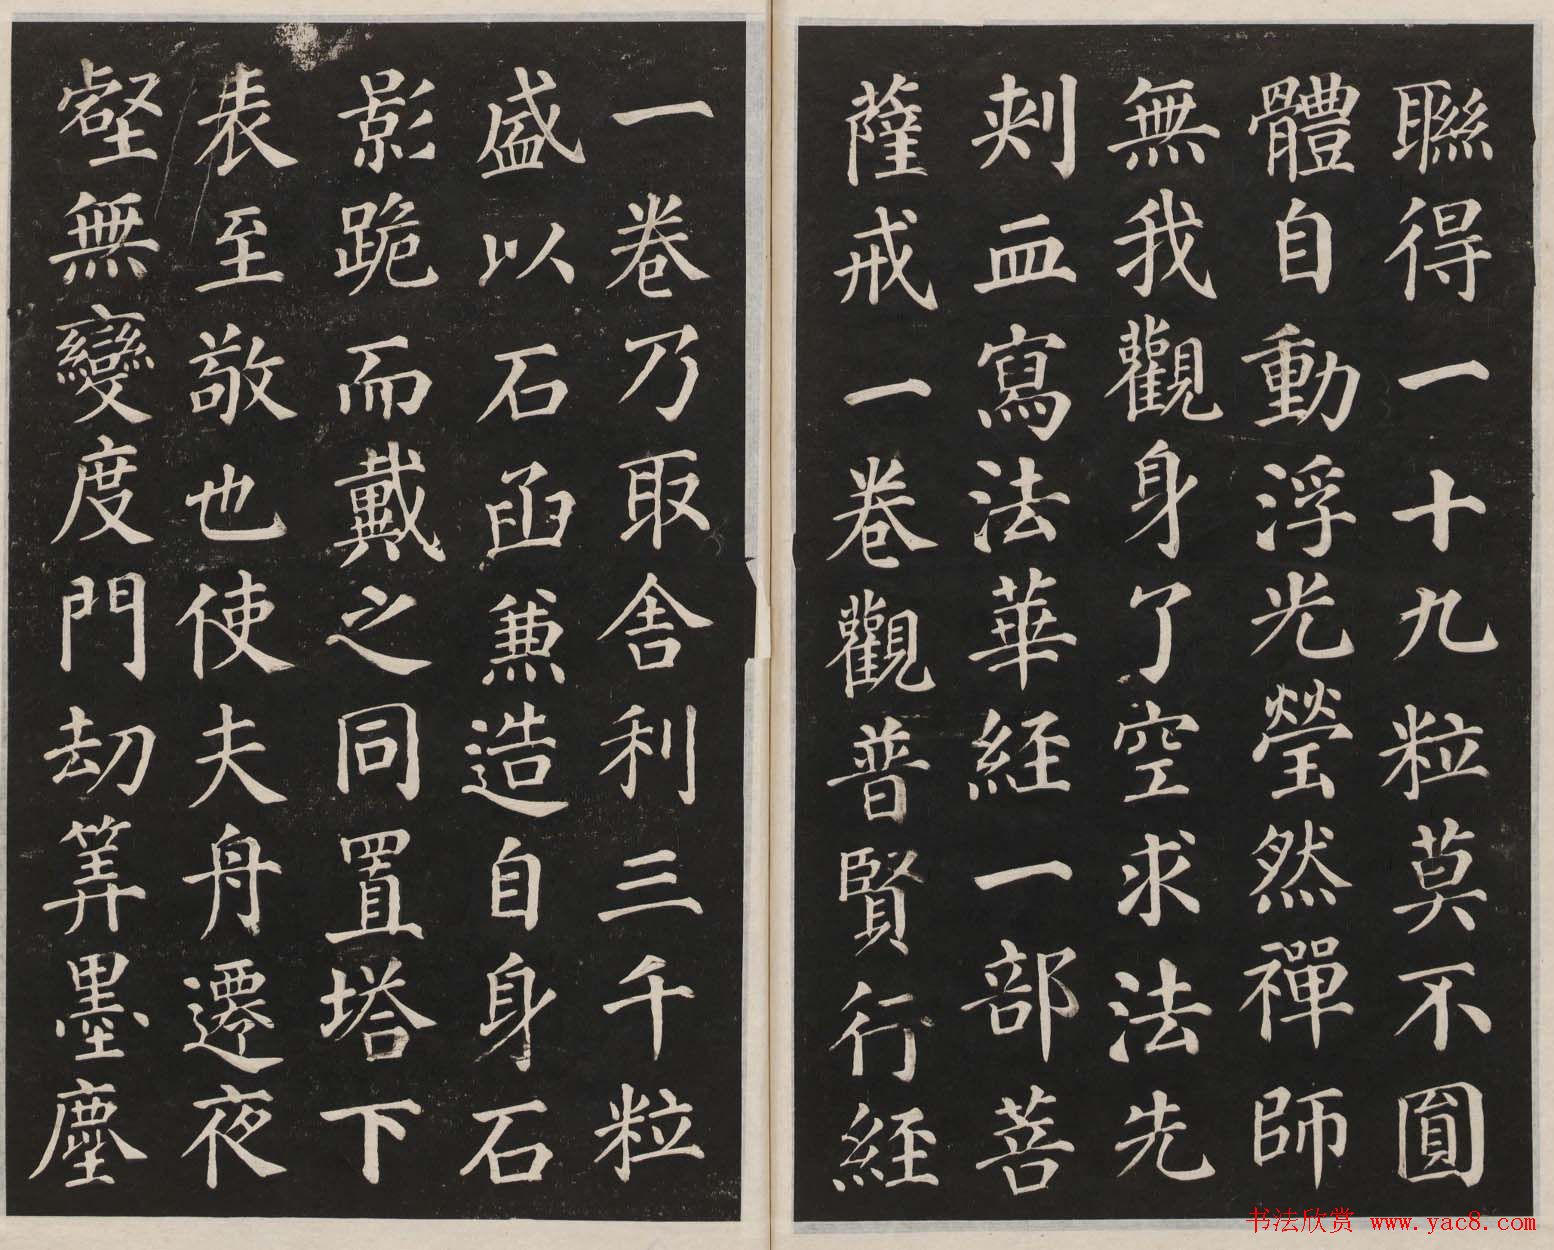 聯得一十九粒莫不圓
體自動浮光瑩然禪師
無我觀身了空求法先
刾血寫法華經一部菩
薩戒一卷觀普賢行經
一卷乃取舎利三千粒
盛以石函兼造自身石
影跪而戴之同置塔下
表至敬也使夫舟遷夜
壑無變度門劫筭墨塵
书法欣赏 www.yac8.com